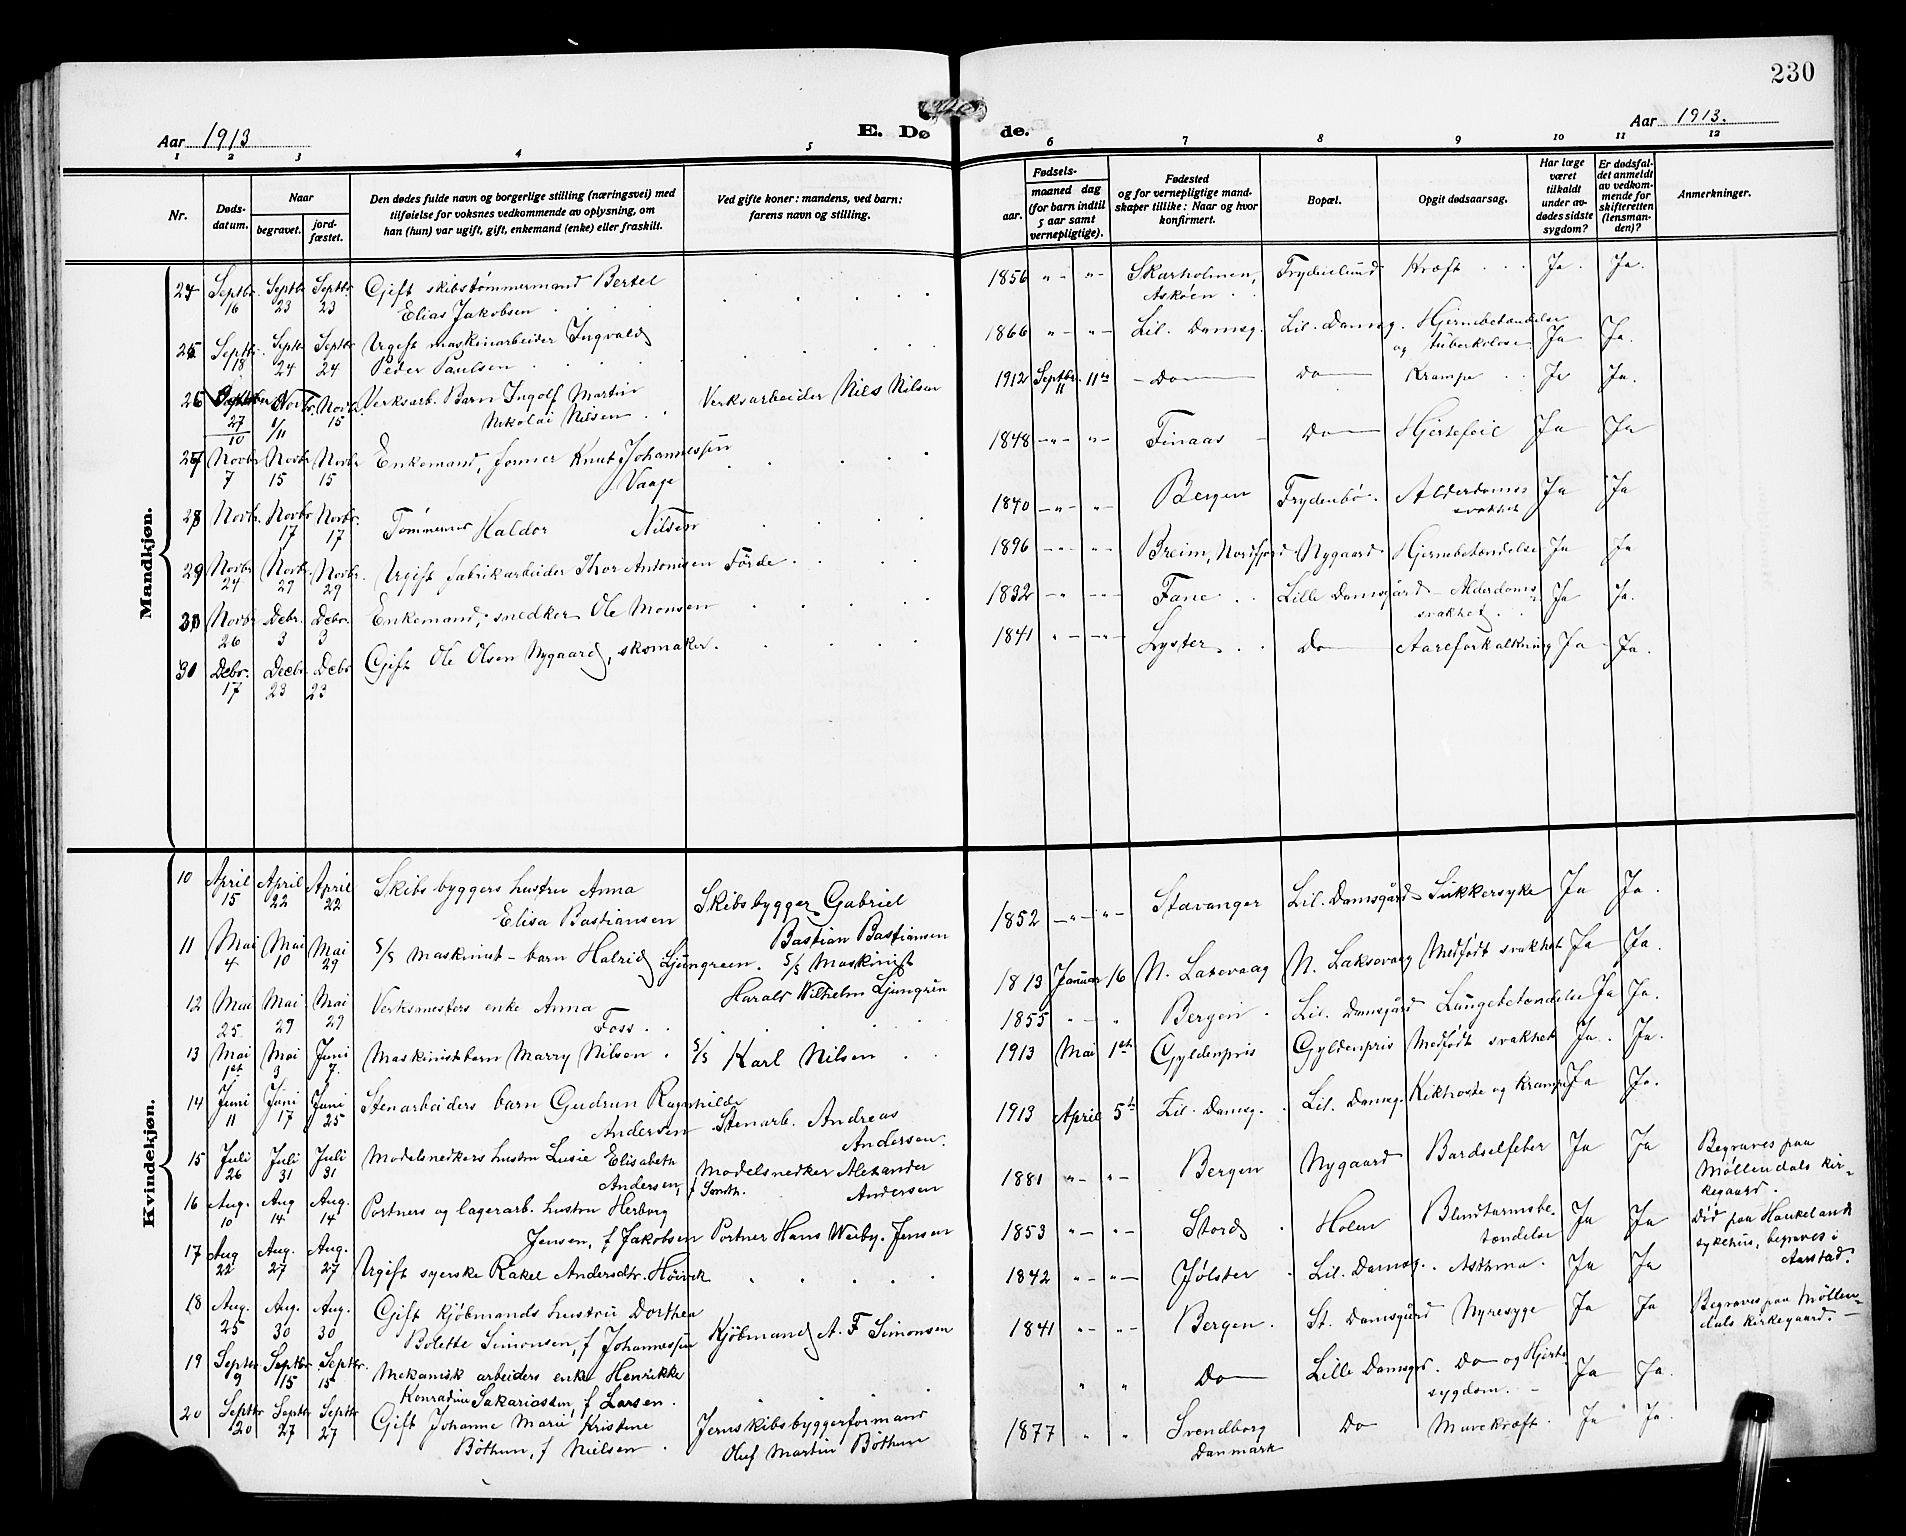 230
Aar 1913
E. Dø
de.
Aar 1913.
1 2 3 4 5 6 7 8 9 10 11 12
Nr.
Døds-
datum.
Naar
begravet.
jord-
fæstet.
Den dødes fulde navn og borgerlige stilling (næringsvei) med
tilføielse for voksnes vedkommende av oplysning, om
han (hun) var ugift, gift, enkemand (enke) eller fraskilt.
Ved gifte koner: mandens, ved barn:
farens navn og stilling.
Fødsels-
aar.
maaned dag
(for barn indtil
5 aar samt
vernepligtige).
Fødested
og for vernepligtige mand-
skaper tillike: Naar og hvor
konfirmert.
Bopæl.
Opgit dødsaarsag.
Har læge
været
tilkaldt
under av-
dødes sidste
sygdom?
Er dødsfal-
det anmeldt
av vedkom-
mende for
skifteretten
(lensman-
den)?
Anmerkninger.
Mandkjøn.
24 Septbr. Septbr Septbr. Gift skibstømmermand Bertel 1856 " " Skarholmen, Frydenlund Kræft Ja. Ja.
16 23 23 Elias Jakobsen Askøen
25 Septbr. Septbr Septbr Ugift maskinarbeider Ingvald 1866 " " Lil. Damsg. Lil. Damsg. Hjernebetændelse
18 24 24 Peder Paulsen og tuberkolose Ja Ja.
26 Novbr. Novbr. Verksarb. Barn Ingolf Martin Verksarbeider Nils Nilsen 1912 Septbr. 11te Do Do Krampe Ja Ja.
27/10 1/11 15 Nikolai Nilsen 11
27 Novbr Novbr Novbr Enkemand, former Knut Johannessen 1848 " " Finaas Do Hjertefeil Ja Ja
7 15 15 Vaage
28 Novbr. Novbr. Novbr. Tømmerm Haldor Nilsen 1840 " " Bergen Frydenbø. Alderdoms Ja Ja
17 17 svakhet
29 Novbr Novbr. Novbr. Ugift fabrikarbeider Thor Antonisen Førde 1896 " " Breim, Nordfjord Nygaard Hjernebetændelse Ja Ja
24 29 29
30 Novbr Debr. Debr. Enkemand, snedker Ole Monsen 1832 " " Fane Lille Damsgård Alderdoms Ja Ja.
26 3 3 svakhet
30 Debr. Decbr. Debr Gift Ole Olsen Nygaard, skomaker. 1841 " " Lyster Do Aareforkalkning Ja Ja.
17 23 23
Kvindekjøn.
10 April April April Skibsbyggers hustru Anna Skibsbygger Gabriel 1852 " " Stavanger Lil. Damsgård Sukkersyke Ja Ja.
15 22 22 Elisa Bastiansen Bastian Bastiansen
11 Mai Mai Mai S/S Maskinist-barn Halrid Ljungreen. S/S Maskinist 1813 Januar 16 N. Laxevaag N. Laksevaag Medfødt svakhet Ja Ja.
4 10 29 Harald Wilhelm Ljungrén
12 Mai Mai Mai Verksmesters enke Anna 1855 " " Bergen Lil. Damsgård Lungebetændelse Ja Ja.
25 29 29 Foss
13 Mai Mai Juni Maskinistbarn Marry Nilsen. S/S Karl Nilsen 1913 Mai 1et Gyldenpris Gyldenpris Medfødt svakhet Ja. Ja.
1et 3 7.
14 Juni Juni Juni Stenarbeiders barn Gudrun Ragnhilde 1913 April 5te Lil. Damsg. Lil. Damsg. Kikhoste og krampe Ja Ja.
11 17 25 Andersen Stenarb. Andreas
Andersen.
15 Juli Juli Juli Modelsnedkers hustru Lusie Elisabeth Modelsnedker Alexander 1881 " " Bergen Nygaard Bardselfeber Ja Ja Begraves paa
26 31 31 Andersen, Andersen Møllendals kir-
kegaard.
16 Aug. Aug Aug. Portners og lagerarb. hustru Herborg 1853 " " Stord Holen Blindtarmsbe- Ja Ja Död paa Haukeland
10 14 14 Jensen, f Jakobsen Portner Hans Jensen tændelse sykehus, begraves i
Aarstad.
17 Aug Aug. Aug. Ugift syerske Rakel Andersdtr. Høivik 1842 " " Jølster Lil. Damsg. Asthma. Ja Ja
22 27 27
18 Aug. Aug. Aug. Gift kjøbmands hustru Dorthea Kjøbmand A. F Simonsen 1841 " " Bergen. St. Damsgård Nyresyge Ja Ja Begraves paa Møllen-
25 30 30 Bolette Simonsen, f Johannessen dals kirkegaard.
19 Septbr Septbr Septbr. Mekanisk arbeiders enke Henrikke " " Do Lille Damsgrd. Do og Hjerte Ja Ja.
9 15 15 Konradine Sakariasen, f Larsen. sygdom.
20 Septbr Septbr Septbr Gift Johanne Marie Kristine Jernskibsbyggerformand 1877 " " Svendborg Do Mavekræft Ja Ja.
20 27 27 Bøthun, f Nielsen Oluf Martin Bøthun Danmark